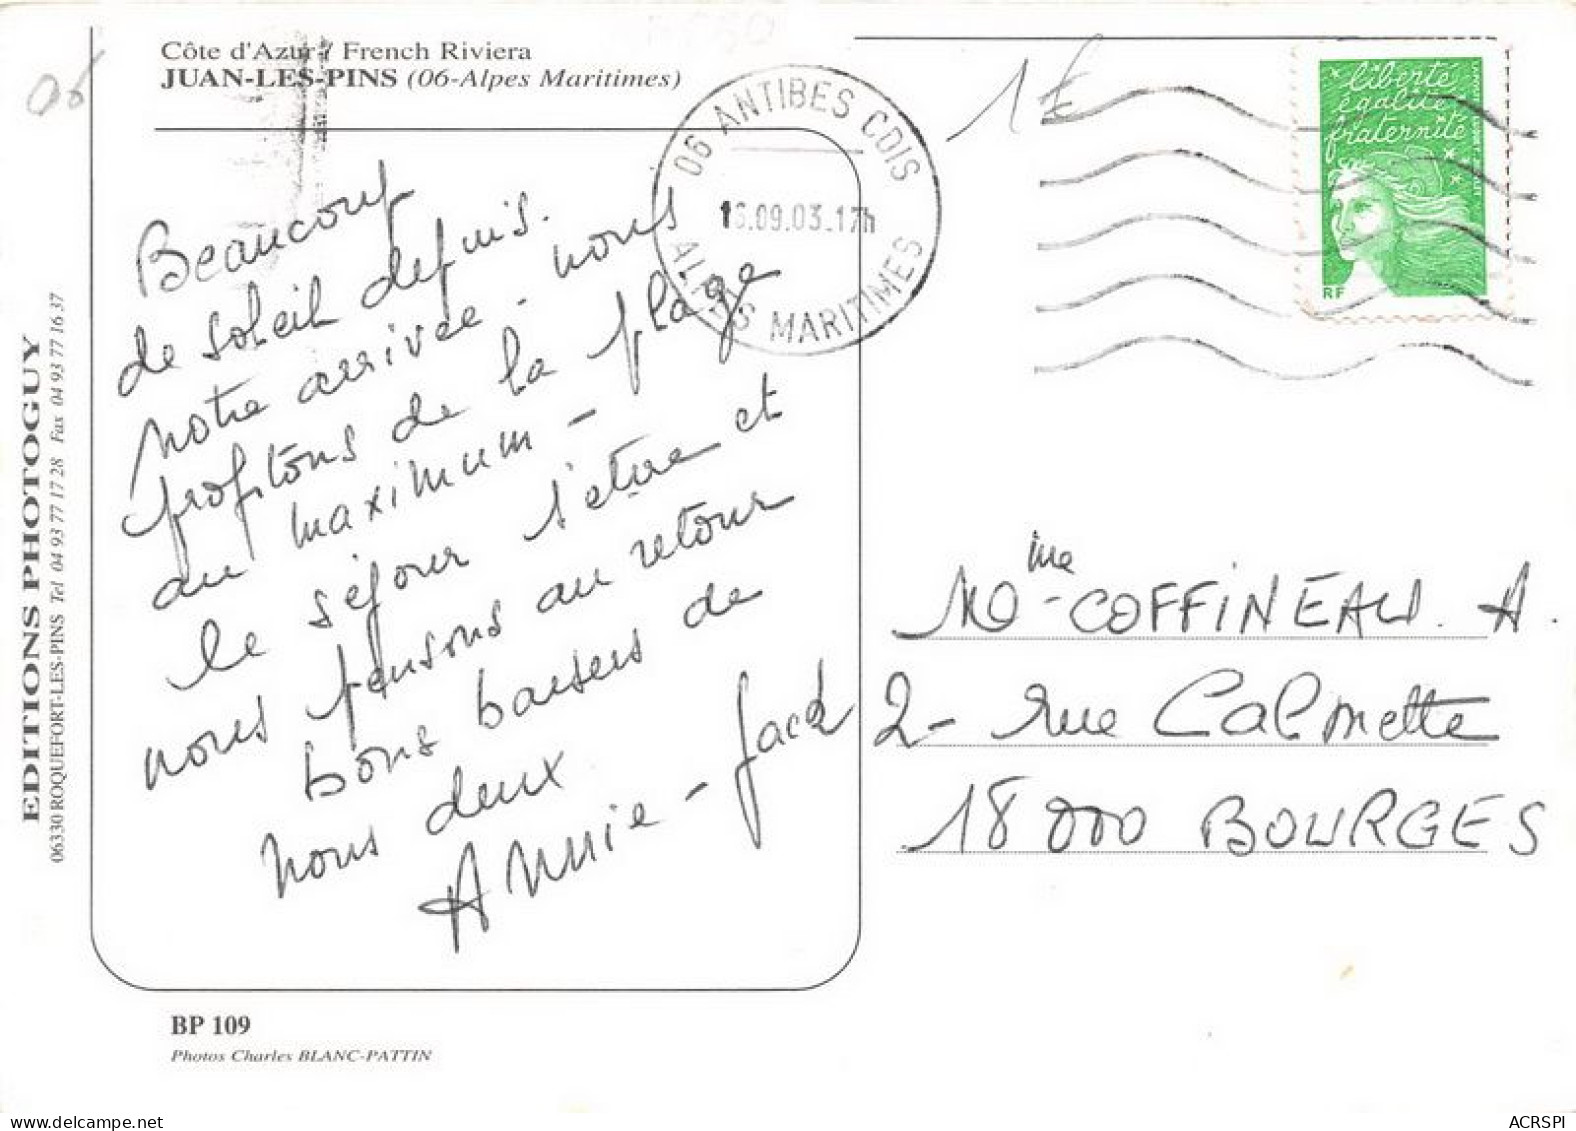 06
Côte d'Azur / French Riviera
JUAN-LES-PINS (06-Alpes Maritimes)
Beaucoup
de soleil depuis
notre arrivée - nous
profitons de la plage
au maximum -
le séjour s'étire et
nous pensons au retour
bons baisers de
nous deux
Annie - Jack
06 ANTIBES CDIS
16.09.03.17h
ALPES MARITIMES
1€
liberté
égalité
fraternité
RF
Mme COFFINEAU. A.
2 - rue Calmette
18000 BOURGES
EDITIONS PHOTOGUY
06330 ROQUEFORT-LES-PINS Tel 04 93 77 17 28 Fax 04 93 77 16 37
BP 109
Photos Charles BLANC-PATTIN
ACRSPI